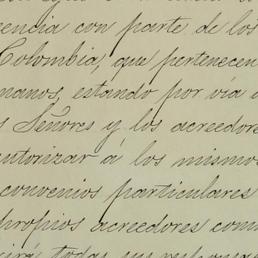 encia con parte de los
Colombia, que pertenecen
manos, estando por via
s Señores y los acreedore
utorizar á los mismos
convenios particulares
propios acreedores com